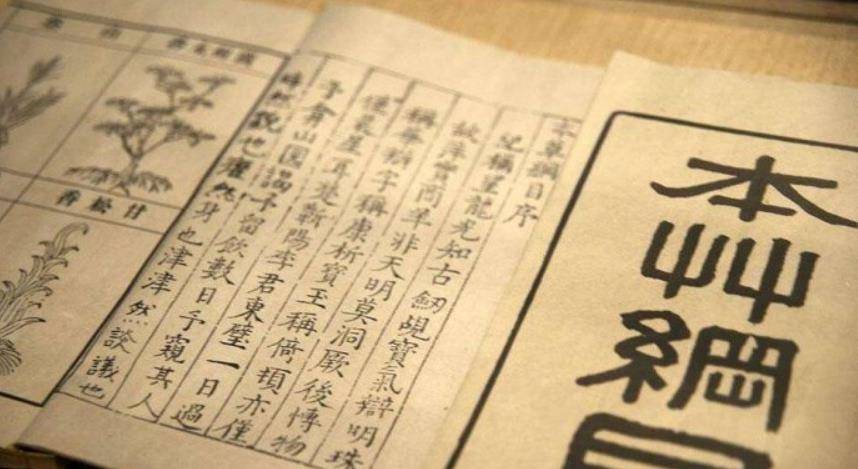 本艸綱目
本草綱目序
紀稱望龍光知古劒覘寶氣辯明珠
故萍實商羊非天明莫洞厥後博物
稱華辯字稱康析寶玉稱倚頓亦僅
僅晨星耳楚蘄陽李君東璧一日過
予弇山园謁予留飲數日予窺其人
睟然貌也癯然身也津津然談議也
甘松香